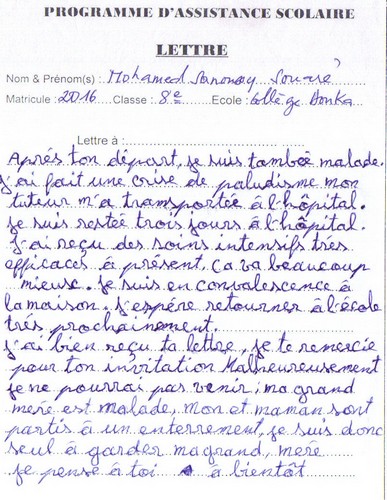 PROGRAMME D'ASSISTANCE SCOLAIRE
LETTRE
Nom & Prénom(s) : Mohamed Souaré
Matricule : 2016 Classe : 8e Ecole : Collège Donka
Lettre à :
Aprés ton départ, je suis tombée malade.
j'ai fait une crise de paludisme mon
tuteur m'a transportée à l'hôpital.
je suis restée trois jours à l'hôpital.
J'ai reçu des soins intensifs trés
efficaces à présent, ça va beaucoup
mieuse. je suis en convalescence à
la maison. j'espére retourner à l'école
trés prochainement.
j'ai bien reçu ta lettre, je te remercie
pour ton invitation Malheureusement
je ne pourrai pas venir; ma grand
mere est malade, mon et maman sont
partis à un enterrement, je suis donc
seul à garder ma grand, mere
je pense à toi à bientôt